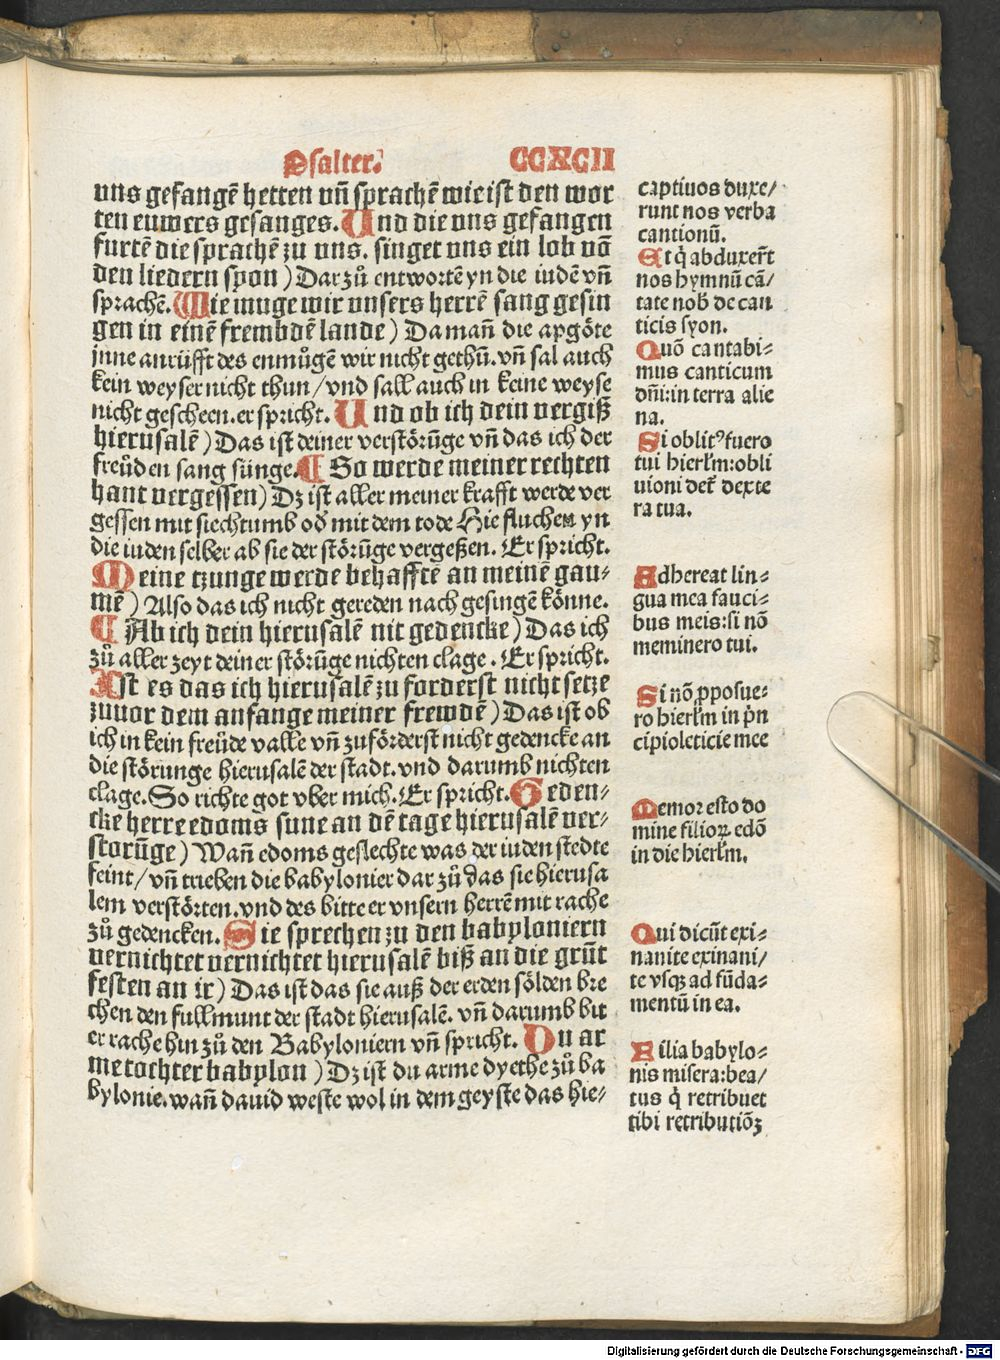 Psalter. CCXCII
uns gefangē hetten vn̄ sprachē wie ist den wor
ten euwers gesanges. Und die uns gefangen
furtē die sprachē zu uns. singet uns ein lob vō
den liedern syon) Dar zů entwortē yn die iudē vn̄
sprachē. Wie muge wir unsers herrē sang gesin
gen in einē frembdē lande) Da man̄ die apgöte
inne anrüfft des enmůgē wir nicht gethū. vn̄ sal auch
kein weyser nicht thun/vnd sall auch in keine weyse
nicht gescheen. er spricht. Und ob ich dein vergiß
hierusalē) Das ist deiner verstörūge vn̄ das ich der
freüden sang sünge. ¶ So werde meiner rechten
hant vergessen) Dz ist aller meiner krafft werde ver
gessen mit siechtumb od̄ mit dem tode Hie fluchen yn
die iuden selber ab sie der störūge vergeßen. Er spricht.
Meine tzunge werde behafftē an meinē gau⸗
mē) Also das ich nicht gereden nach gesingē könne.
¶ Ab ich dein hierusalē nit gedencke) Das ich
zů aller zeyt deiner störūge nichten clage. Er spricht.
Ist es das ich hierusalē zu forderst nicht setze
zuuor dem anfange meiner frewdē) Das ist ob
ich in kein freüde valle vn̄ zu förderst nicht gedencke an
die störunge hierusalē der stadt. vnd darumb nichten
clage. So richte got vber mich. Er spricht. Geden⸗
cke herre edoms sune an dē tage hierusalē ver⸗
storūge) Wan̄ edoms geslechte was der iuden stedte
feint/vn̄ trieben die babylonier dar zů das sie hierusa
lem verstörten. vnd des bitte er vnsern herrē mit rache
zů gedencken. Sie sprechen zu den babyloniern
vernichtet vernichtet hierusalē biß an die grūt
festen an ir) Das ist das sie auß der erden sölden bre
chen den fullmunt der stadt hierusalē. vn̄ darumb bit
er rache hin zů den Babyloniern vn̄ spricht. Du ar
me tochter babylon) Dz ist du arme dyethe zů ba
bylonie. wan̄ dauid weste wol in dem geyste das hie⸗
captiuos duxe/
runt nos verba
cantionū.
Et q̇ abduxer̄t
nos hymnū cā/
tate nob̄ de can
ticis syon.
Quō cantabi⸗
mus canticum
dn̄i:in terra alie
na.
Si oblitꝰ fuero
tui hierłm:obli
uioni det̄ dexte
ra tua.
Adhereat lin⸗
gua mea fauci⸗
bus meis:si nō
meminero tui.
Si nō ꝓposue⸗
ro hierłm in p̄n
cipio leticie mee
Memor esto do
mine filioꝝ edō
in die hierłm.
Qui dicūt exi⸗
nanite exinani/
te vsqꝫ ad fūda⸗
mentū in ea.
Filia babylo⸗
nis misera:bea/
tus q̇ retribuet
tibi retributiōꝫ
Digitalisierung gefördert durch die Deutsche Forschungsgemeinschaft - DFG